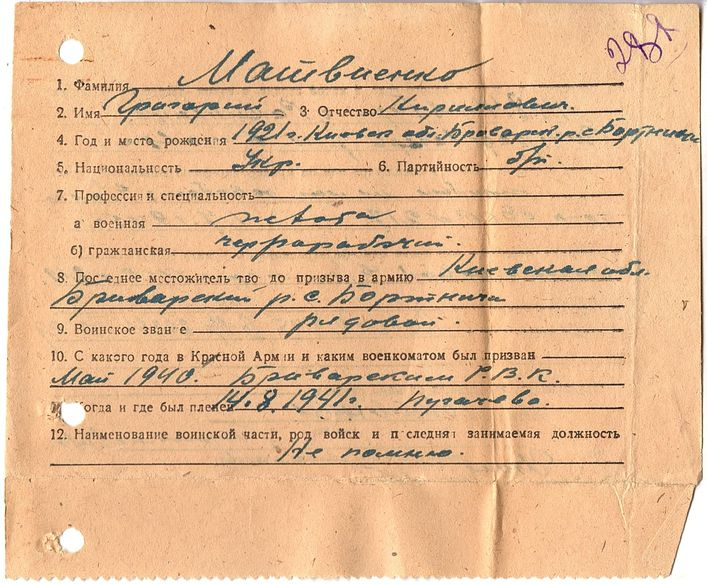 289
1. Фамилия Матвиенко
2. Имя Григорий 3. Отчество Кирилович.
4. Год и место рождения 1921 г. Киевск обл. Броварск. р. с. Бортничи
5. Национальность Укр. 6. Партийность б/п
7. Профессия и специальность
а военная пехота
б) гражданская черрарабочий.
8. Последнее местожительство до призыва в армию Киевская обл.
Броварский р. с. Бортничи
9. Воинское звание рядовой.
10. С какого года в Красной Армии и каким военкоматом был призван
Май 1940. Броварским Р.В.К.
Когда и где был пленен 14.8.1941 г. Пугачево.
12. Наименование воинской части, род войск и последняя занимаемая должность
Не помню.